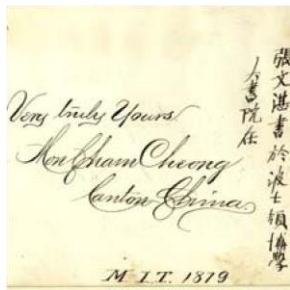 Very truly Yours
Mon Cham Cheong
Canton China
張文湛書於波士頓博學
大書院任
M I.T. 1879